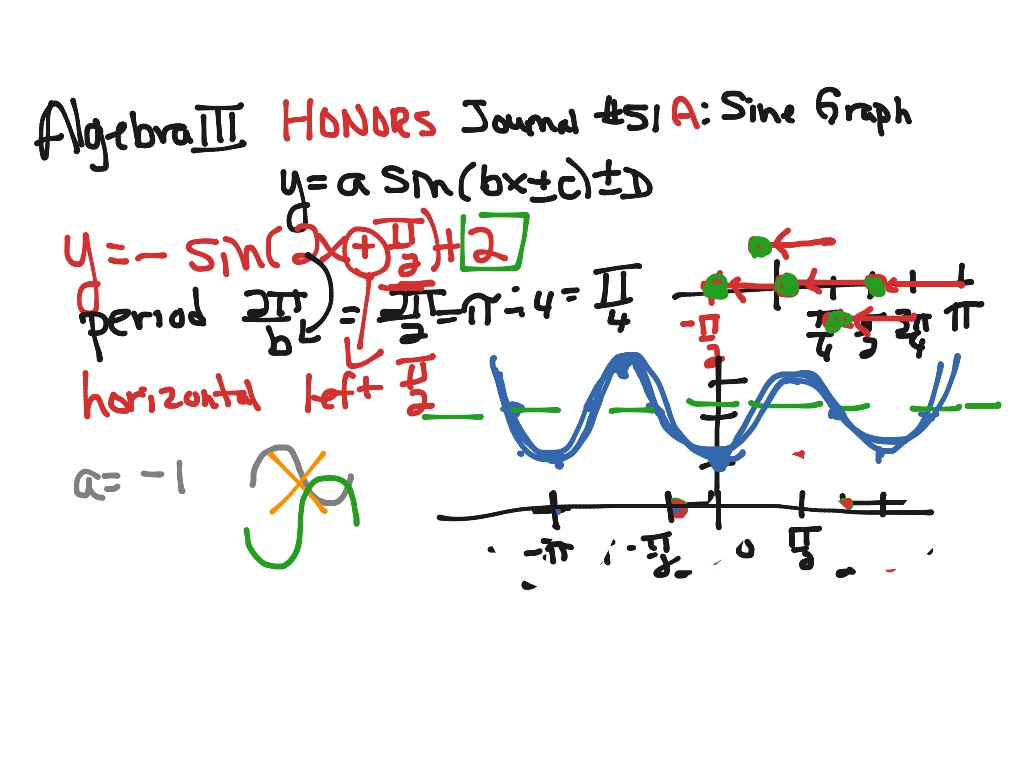 Algebra III HONORS Journal #51A: Sine Graph
y = a sin(bx ± c) ± D
y = - sin(2x + π/2) + 2
period 2π/b = 2π/2 = π ÷ 4 = π/4
horizontal left π/2
a = -1
-π/2 π/4 π/2 3π/4 π
-π -π/2 0 π/2